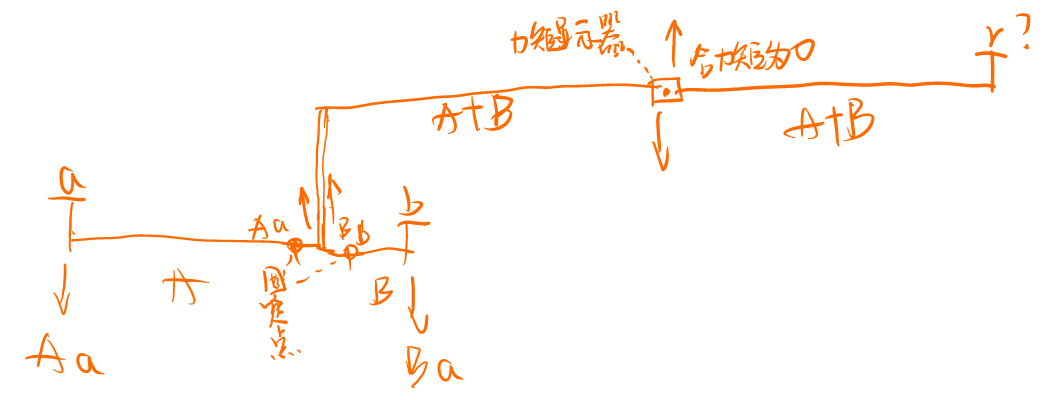 力矩显示器
合力矩为0
r?
A+B
A+B
a
Aa
Bb
b
A
固定点
B
Aa
Ba